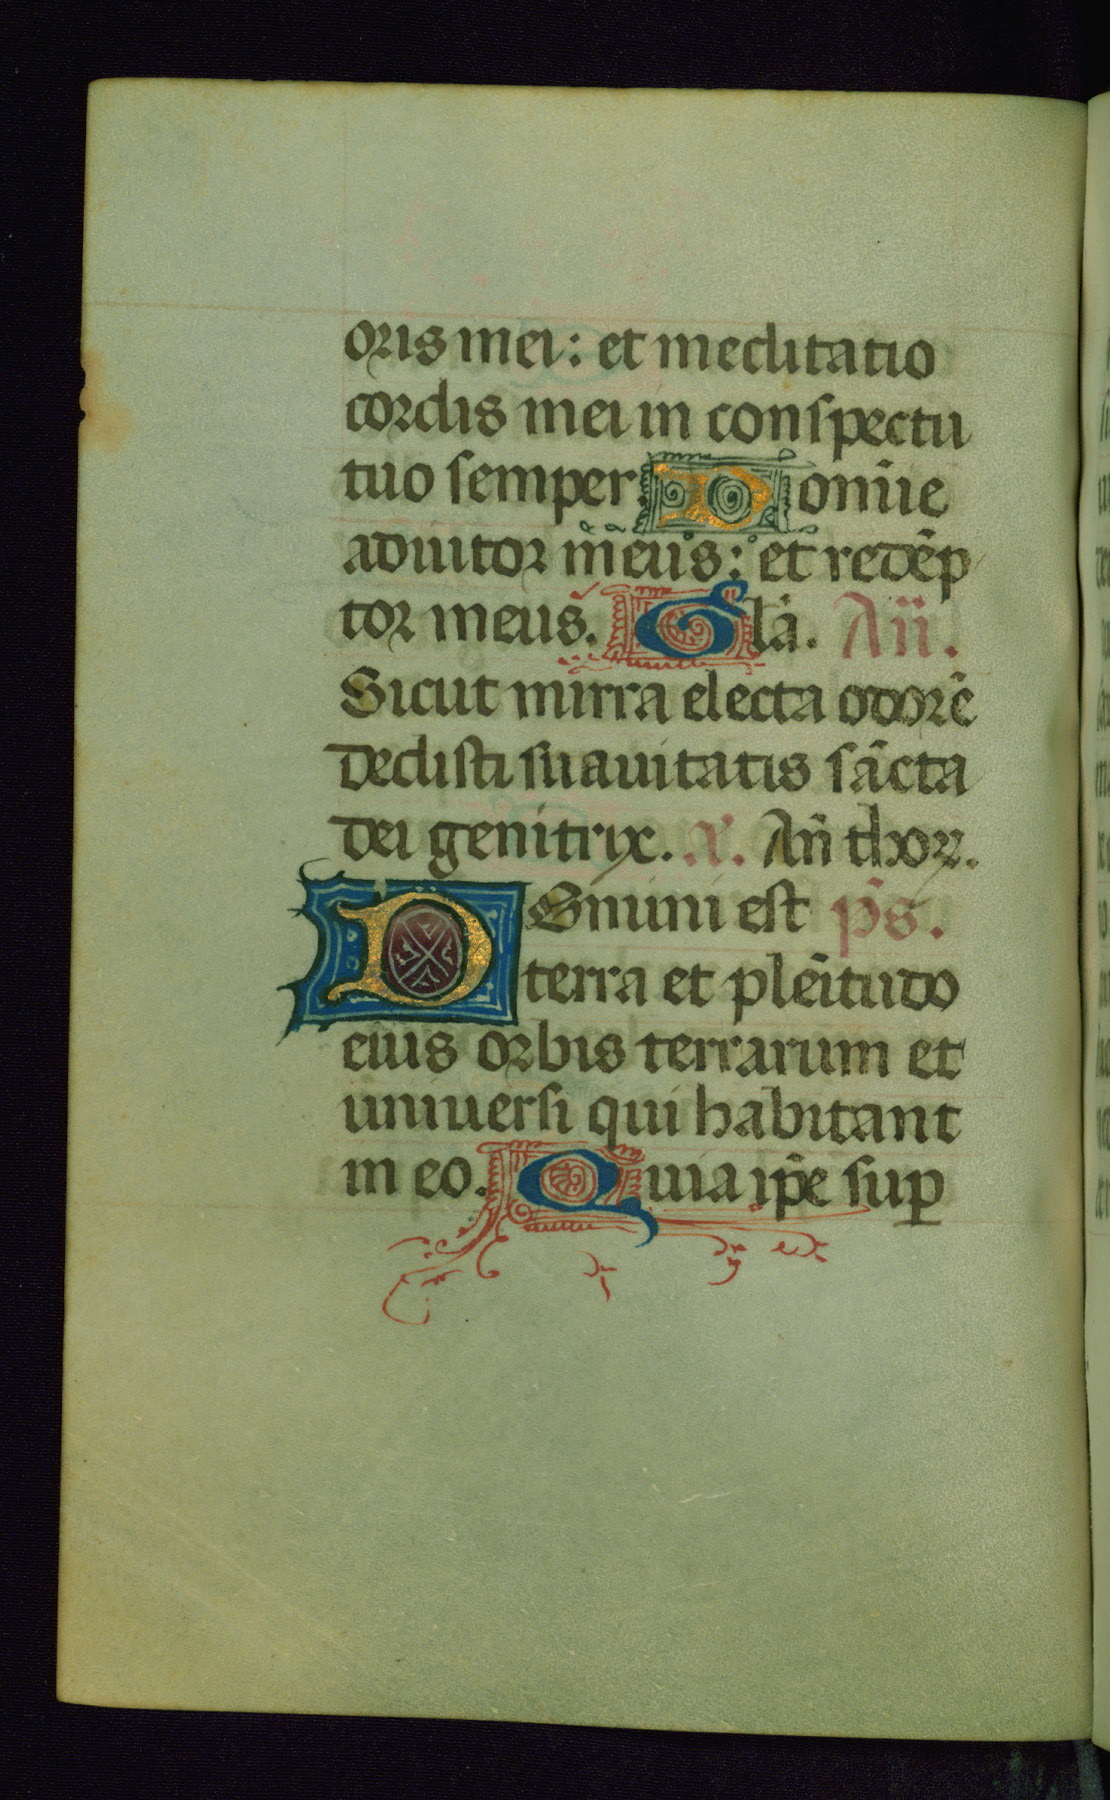 oris mei: et meditatio
cordis mei in conspectu
tuo semper. Domīe
adiutor meus: et redēp
tor meus. Glā. Añ.
Sicut mirra electa odorē
dedisti suauitatis sācta
dei genitrix. Añ thor.
Dñmini est p̄s.
terra et plēitudo
eius orbis terrarum et
uniuersi qui habitant
in eo. Quia ip̄e sup